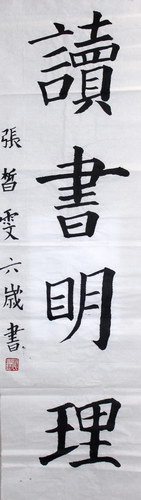 讀書明理
張晳雯六歲書